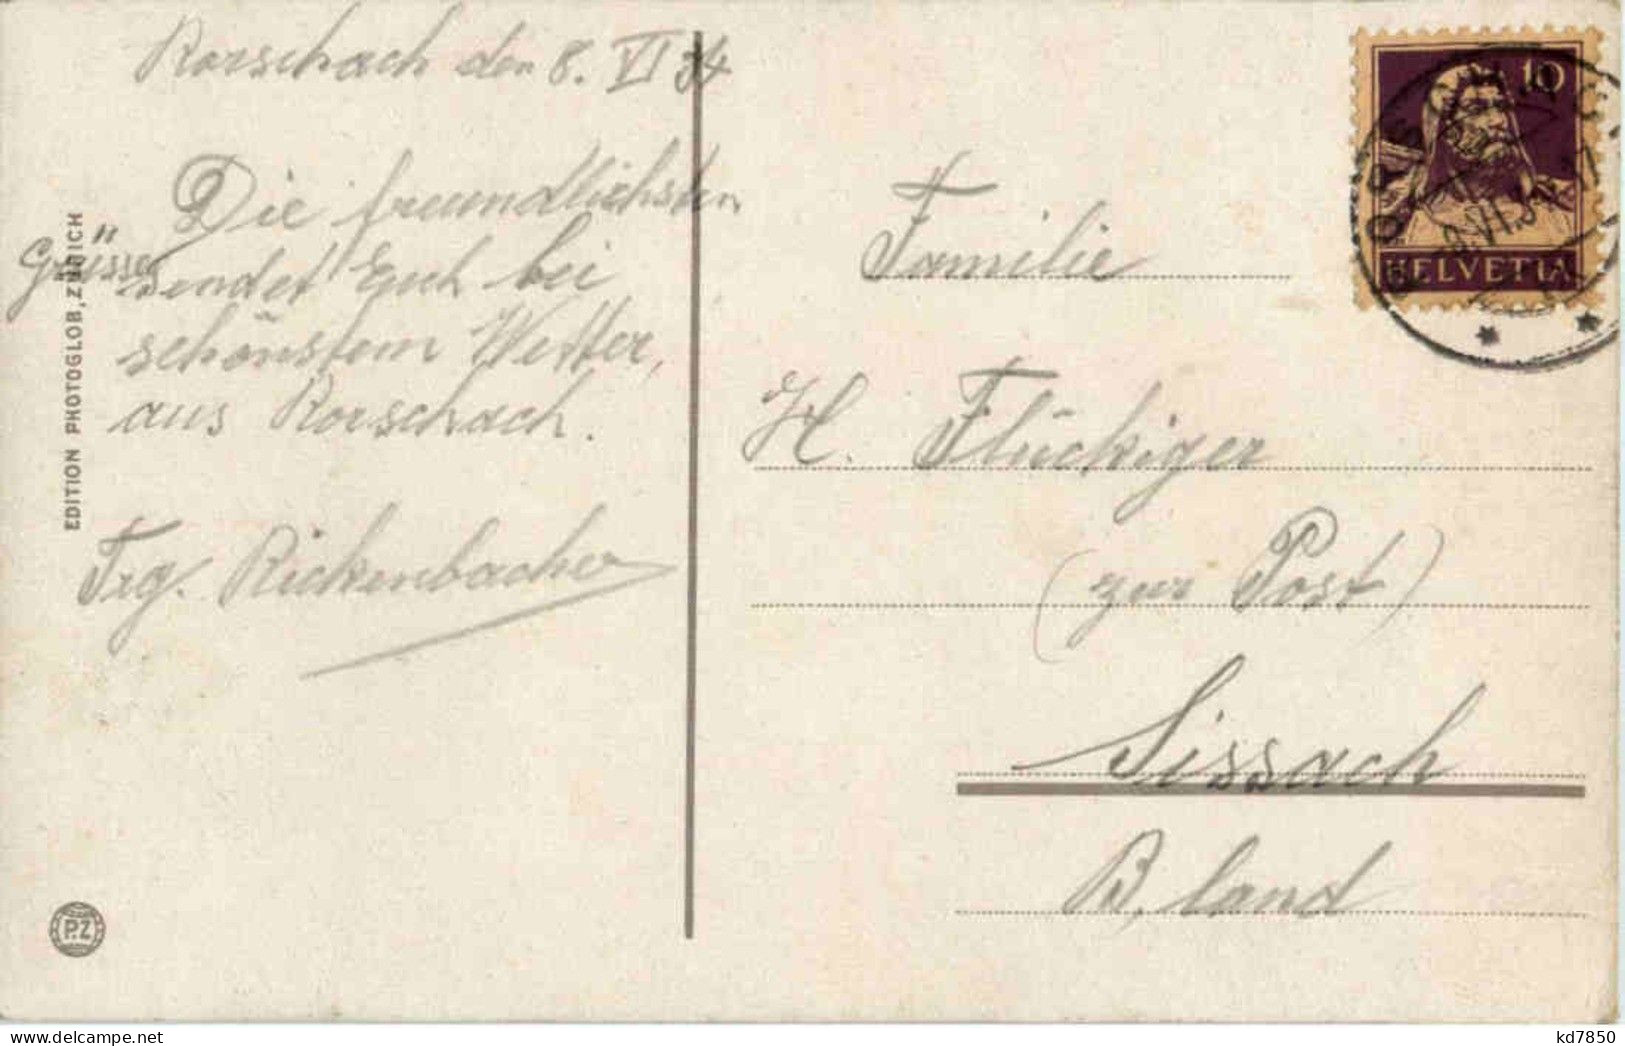 Rorschach den 8. VI 34
Die freundlichsten
Grüsse sendet Euch bei
schönstem Wetter,
aus Rorschach.
Frg. Rickenbacher
EDITION PHOTOGLOB, ZÜRICH
P.Z
10
HELVETIA
Familie
H. Flückiger
(zur Post)
Sissach
B. land
kd7850